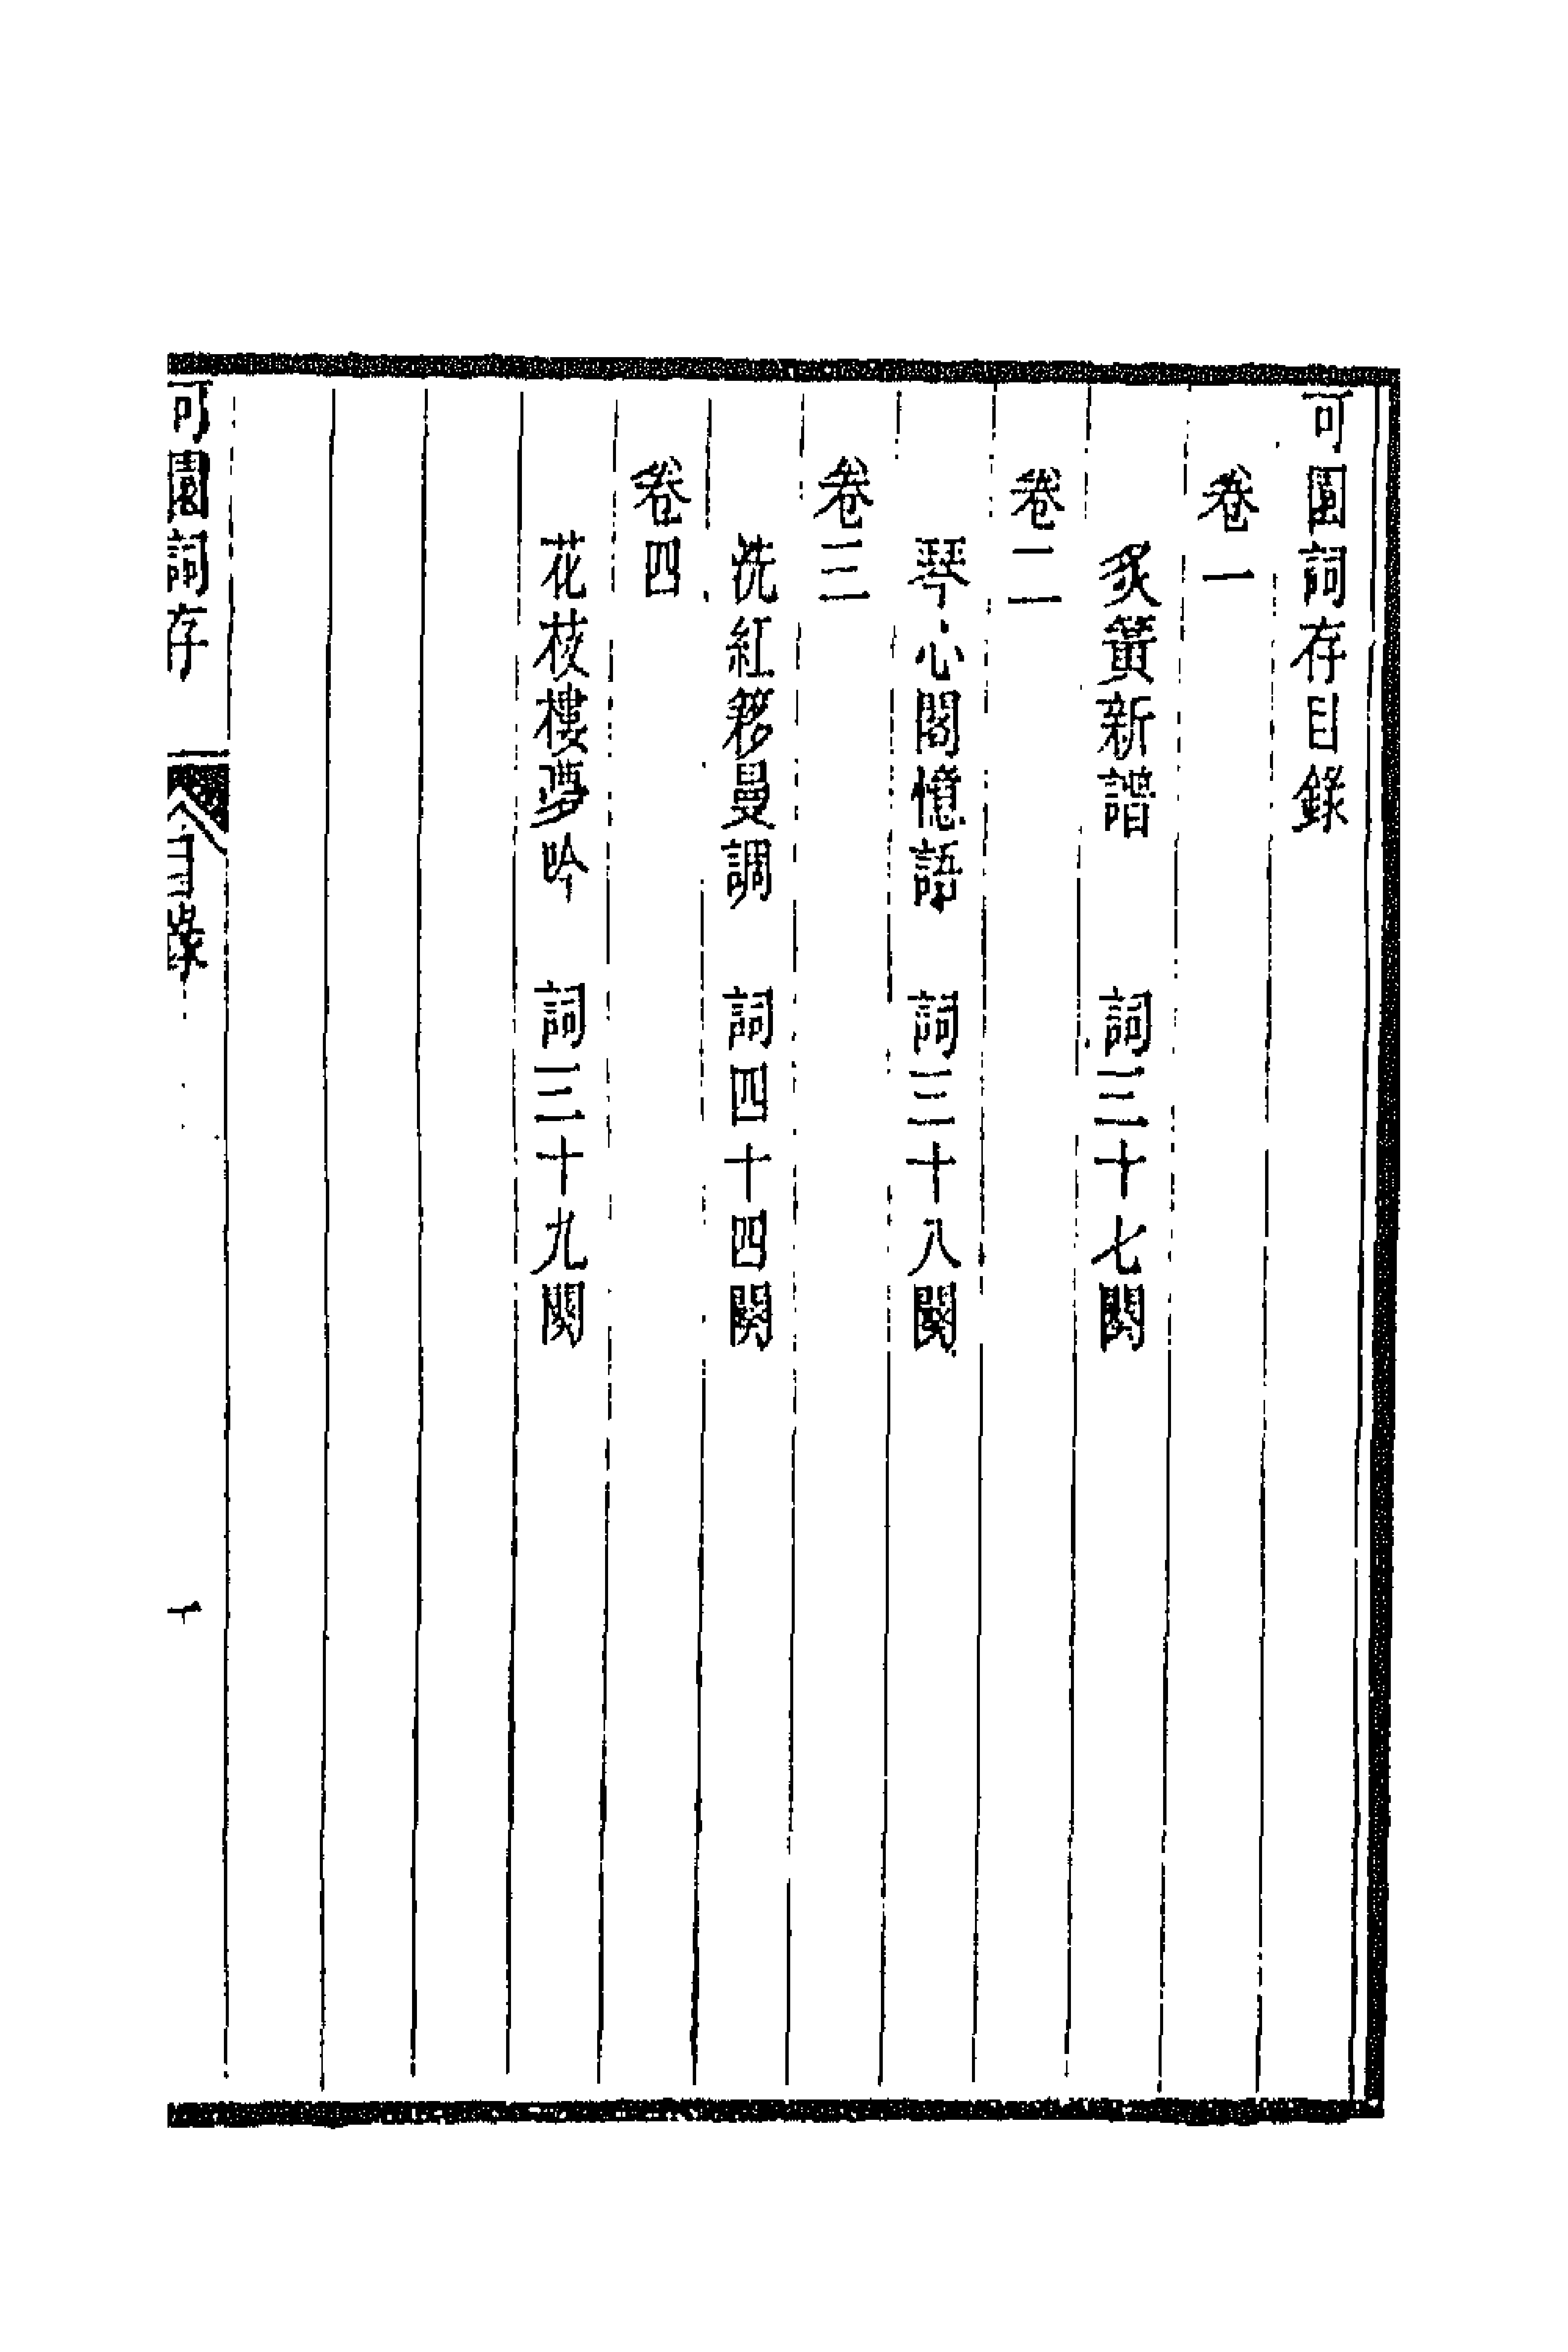 可園詞存目錄
卷一
炙簧新譜　詞三十七闋
卷二
琴心閣憶語　詞三十八闋
卷三
洗紅簃曼調　詞四十四闋
卷四
花枝樓夢吟　詞三十九闋
可園詞存　目錄　一